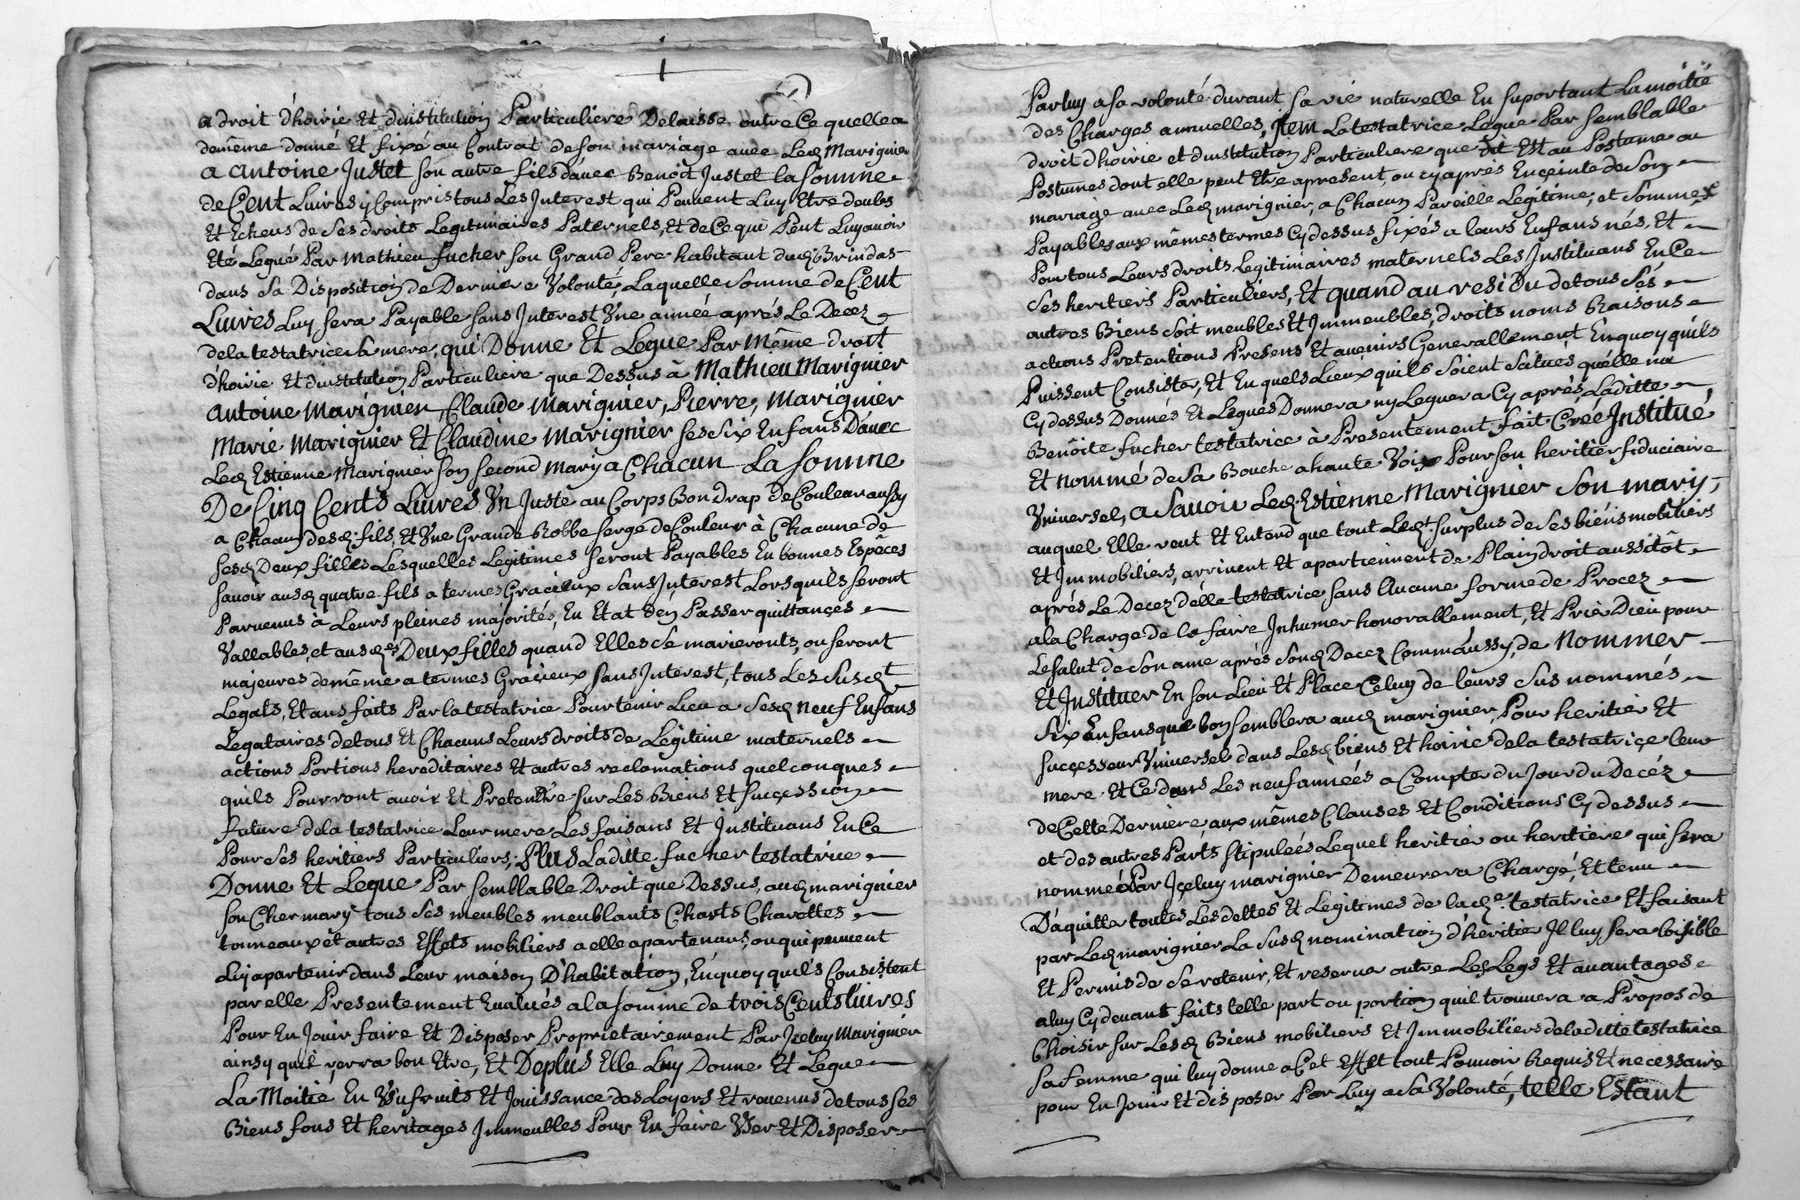 a droit d'hoirie Et d'institution Particuliere Delaisse outre Ce quelle a
demême donné Et fixé au Contrat de son mariage avec Led. Marignier
a antoine Justet son autre fils d'avec Benoit Justet la somme
de Cent Livres y Compris tous Les Interest qui Peuvent Luy Etre deubs
Et Echeus de ses droits Legitimaires Paternels, Et de Ce qui Peut Luy avoir
Eté Legué Par Mathieu fucher son Grand Pere habitant dud. Brindas
dans sa Disposition de Derniere Volonté, Laquelle somme de Cent
Livres Luy sera Payable sans Interest Vne année aprés Le Decez
de la testatrice sa mere, qui Donne Et Legue Par Même droit
d'hoirie Et d'institution Particuliere que Dessus à Mathieu Marignier
antoine Marignier, Claude Marignier, Pierre, Marignier
Marie Marignier Et Claudine Marignier ses six Enfans D'avec
Led. Estienne Marignier son second Mary a Chacun La somme
De Cinq Cents Livres Vn Juste au Corps Bon drap de Couleur aussy
a Chacun desd. fils, Et Vne Grande Robbe serge de Couleur à Chacune de
sesd. Deux filles Lesquelles Legitimes seront Payables En bonnes Espêces
savoir ausd. quatre fils a termes Gracieux sans Interest Lorsquils seront
Parvenus à Leurs pleines majorités, En Etat d'en Passer quittançes
Vallables, et ausd.es Deux filles quand Elles se marieronts, ou seront
majeures demême a termes Gracieux sans Interest, tous Les susd.t
Legats, Et ans faits Par la testatrice Pour tenir Lieu a sesd. neuf Enfans
Legataires de tous Et Chacuns Leurs droits de Legitime maternels
actions Portions hereditaires Et autres reclamations quelconques
quils Pourront avoir Et Pretendre sur Les Biens Et succession
future de la testatrice Leur mere Les faisans Et Instituans En Ce
Pour ses heritiers Particuliers; Plus Laditte fucher testatrice
Donne Et Legue Par semblable Droit que Dessus, aud. marignier
son Cher mary tous ses meubles meublants Charts Charettes
tonneaux et autres Effets mobiliers a elle apartenans, ou qui peuvent
Luy apartenir dans Leur maison D'habitation, En quoy quils Consistent
par elle Presentement Evalués a la somme de trois Cents livres
Pour En Jouir faire Et Disposer Proprietairement Par Iceluy Marignier
ainsy quil verra bon Etre, Et Deplus Elle Luy Donne Et Legue
La Moitié En Vsufruits Et Jouissance des Loyers Et revenus de tous ses
Biens fons Et heritages Immeubles Pour En faire Vser Et Disposer
Par luy a sa volonté durant sa vie naturelle En suportant La moitié
des Charges annuelles, Item La testatrice Legue Par semblable
droit d'hoirie et d'institution Particuliere que dit Est au Postume ou
Postumes dont elle peut Etre apresent, ou cy aprés Enceinte de son
mariage avec Led. marignier, a Chacun Pareille Legitime, et somme
Payables aux mêmes termes Cy dessus fixés a leurs Enfans nés, Et
Pour tous Leurs droits Legitimaires maternels Les Instituans En Ce
ses heritiers Particuliers, Et quand au residu de tous ses
autres Biens soit meubles Et Immeubles, droits noms Raisons
actions Pretentions Presens Et avenirs Generallement En quoy quils
Puissent Consister, Et En quels Lieux quils soient situés quelle na
Cy dessus Donnés Et Legués Donnera ny Leguera Cy aprés, Laditte
Benoite fucher testatrice à Presentement fait Créé Institué
Et nommé de sa Bouche a haute Voix Pour son heritier fiduciaire
Vniversel, a savoir Led. Estienne Marignier son mary,
auquel Elle veut Et Entend que tout Led.t surplus de ses biens mobiliers
Et Immobiliers, arrivent Et apartiennent de Plain droit aussitôt
aprés Le Decez d'elle testatrice sans Aucune forme de Procez
a la Charge de la faire Inhumer honorablement, Et Prier Dieu pour
Le salut de son ame aprés sond. Decez Comm'aussy, de Nommer
Et Instituer En son Lieu Et Place Celuy de leurs sus nommés
six Enfans que bon semblera aud. marignier, Pour heritier Et
successeur Vniversel dans Lesd. biens Et hoirie de la testatrice Leur
mere. Et Ce dans Les neuf années a Compter du Jour du Decéz
de Cette Derniere, aux mêmes Clauses Et Conditions Cy dessus
et des autres Parts stipuleés Lequel heritier ou heritiere qui sera
nommé Par Içeluy marignier Demeurera Chargé, Et tenu
D'aquitter toutes Les dettes Et Legitimes de lad.e testatrice Et faisant
par Led. marignier La susd. nomination d'héritier Il luy sera Loisible
Et Permis de se retenir, Et reserver outre Les Legs Et avantages
a luy Cy devant faits telle part ou portion quil trouvera a Propos de
Choisir sur Lesd. Biens mobiliers Et Immobiliers de laditte testatrice
sa femme qui luy donne a Cet Effet tout Pouvoir Requis Et necessaire
pour En Jouir Et disposer Par Luy a sa Volonté, telle Estant